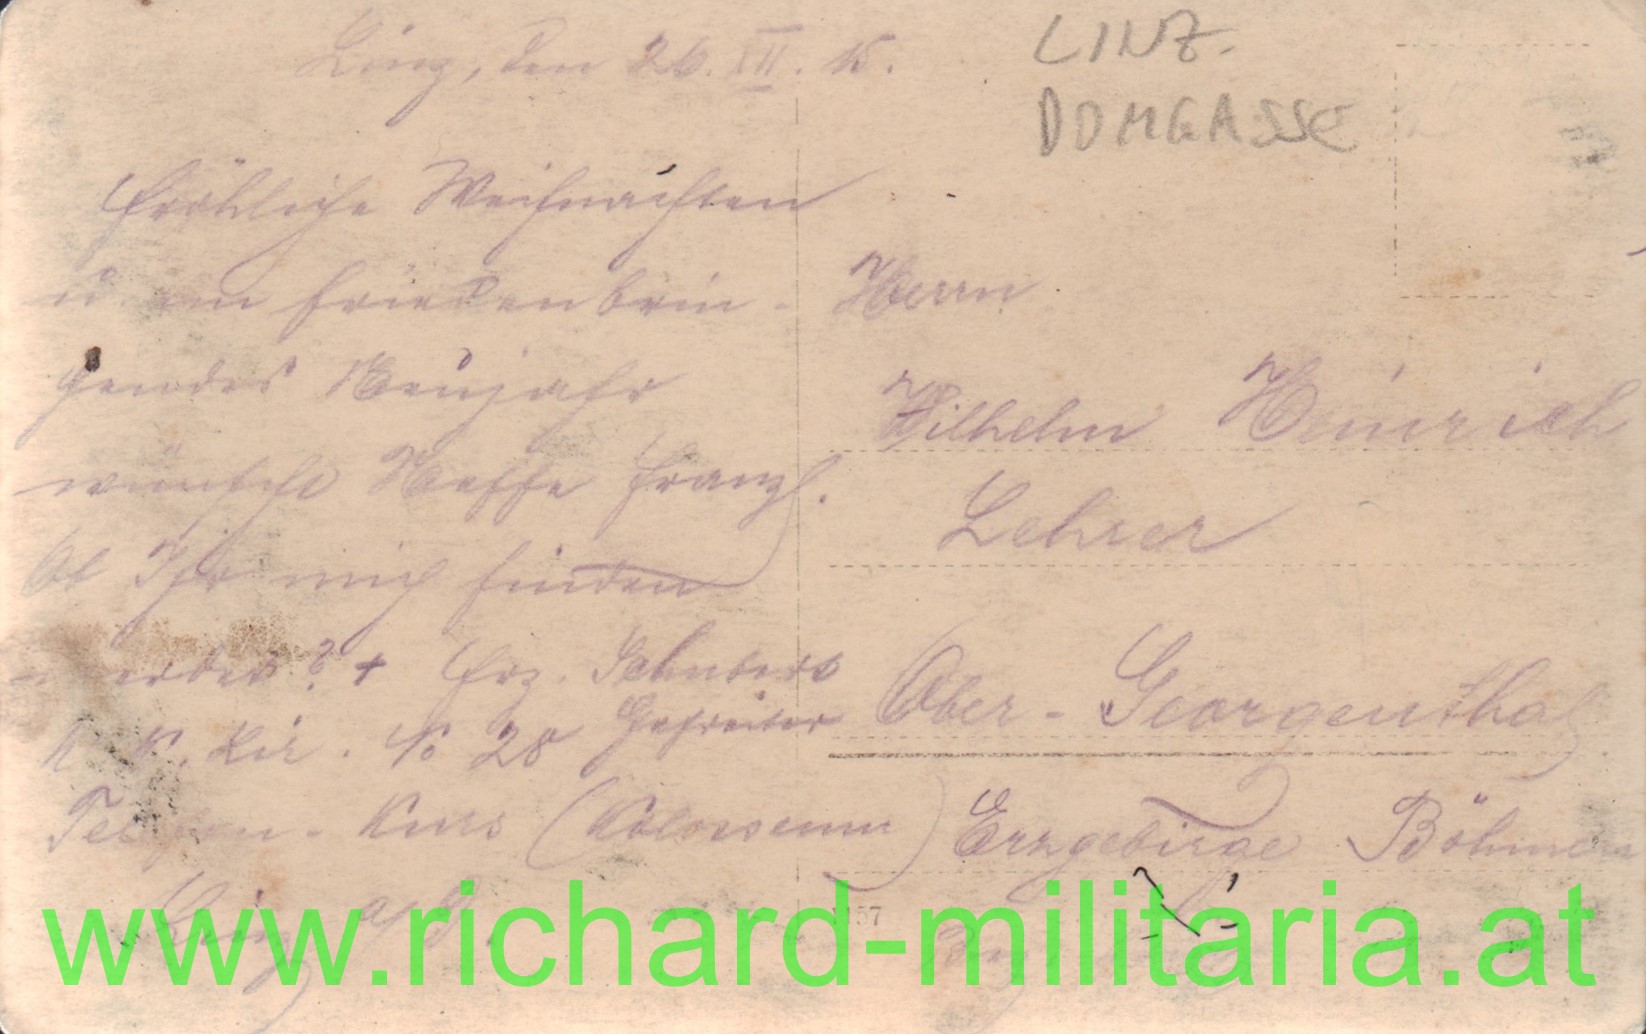 Linz, den 26. XII. 15.
LINZ.
DOMGASSE
Fröhliche Weihnachten
u. ein friedenbrin-
gendes Neujahr
wünscht Neffe Franzl.
Ob Ihr mich finden
werdet? + Frz.
Gefreiter
K. K. No 28
Kurs (Kolosseum)
Linz a/D.
Herrn
Wilhelm Heinrich
Lehrer
Ober-Georgenthal
Erzgebirge Böhmen
157
www.richard-militaria.at